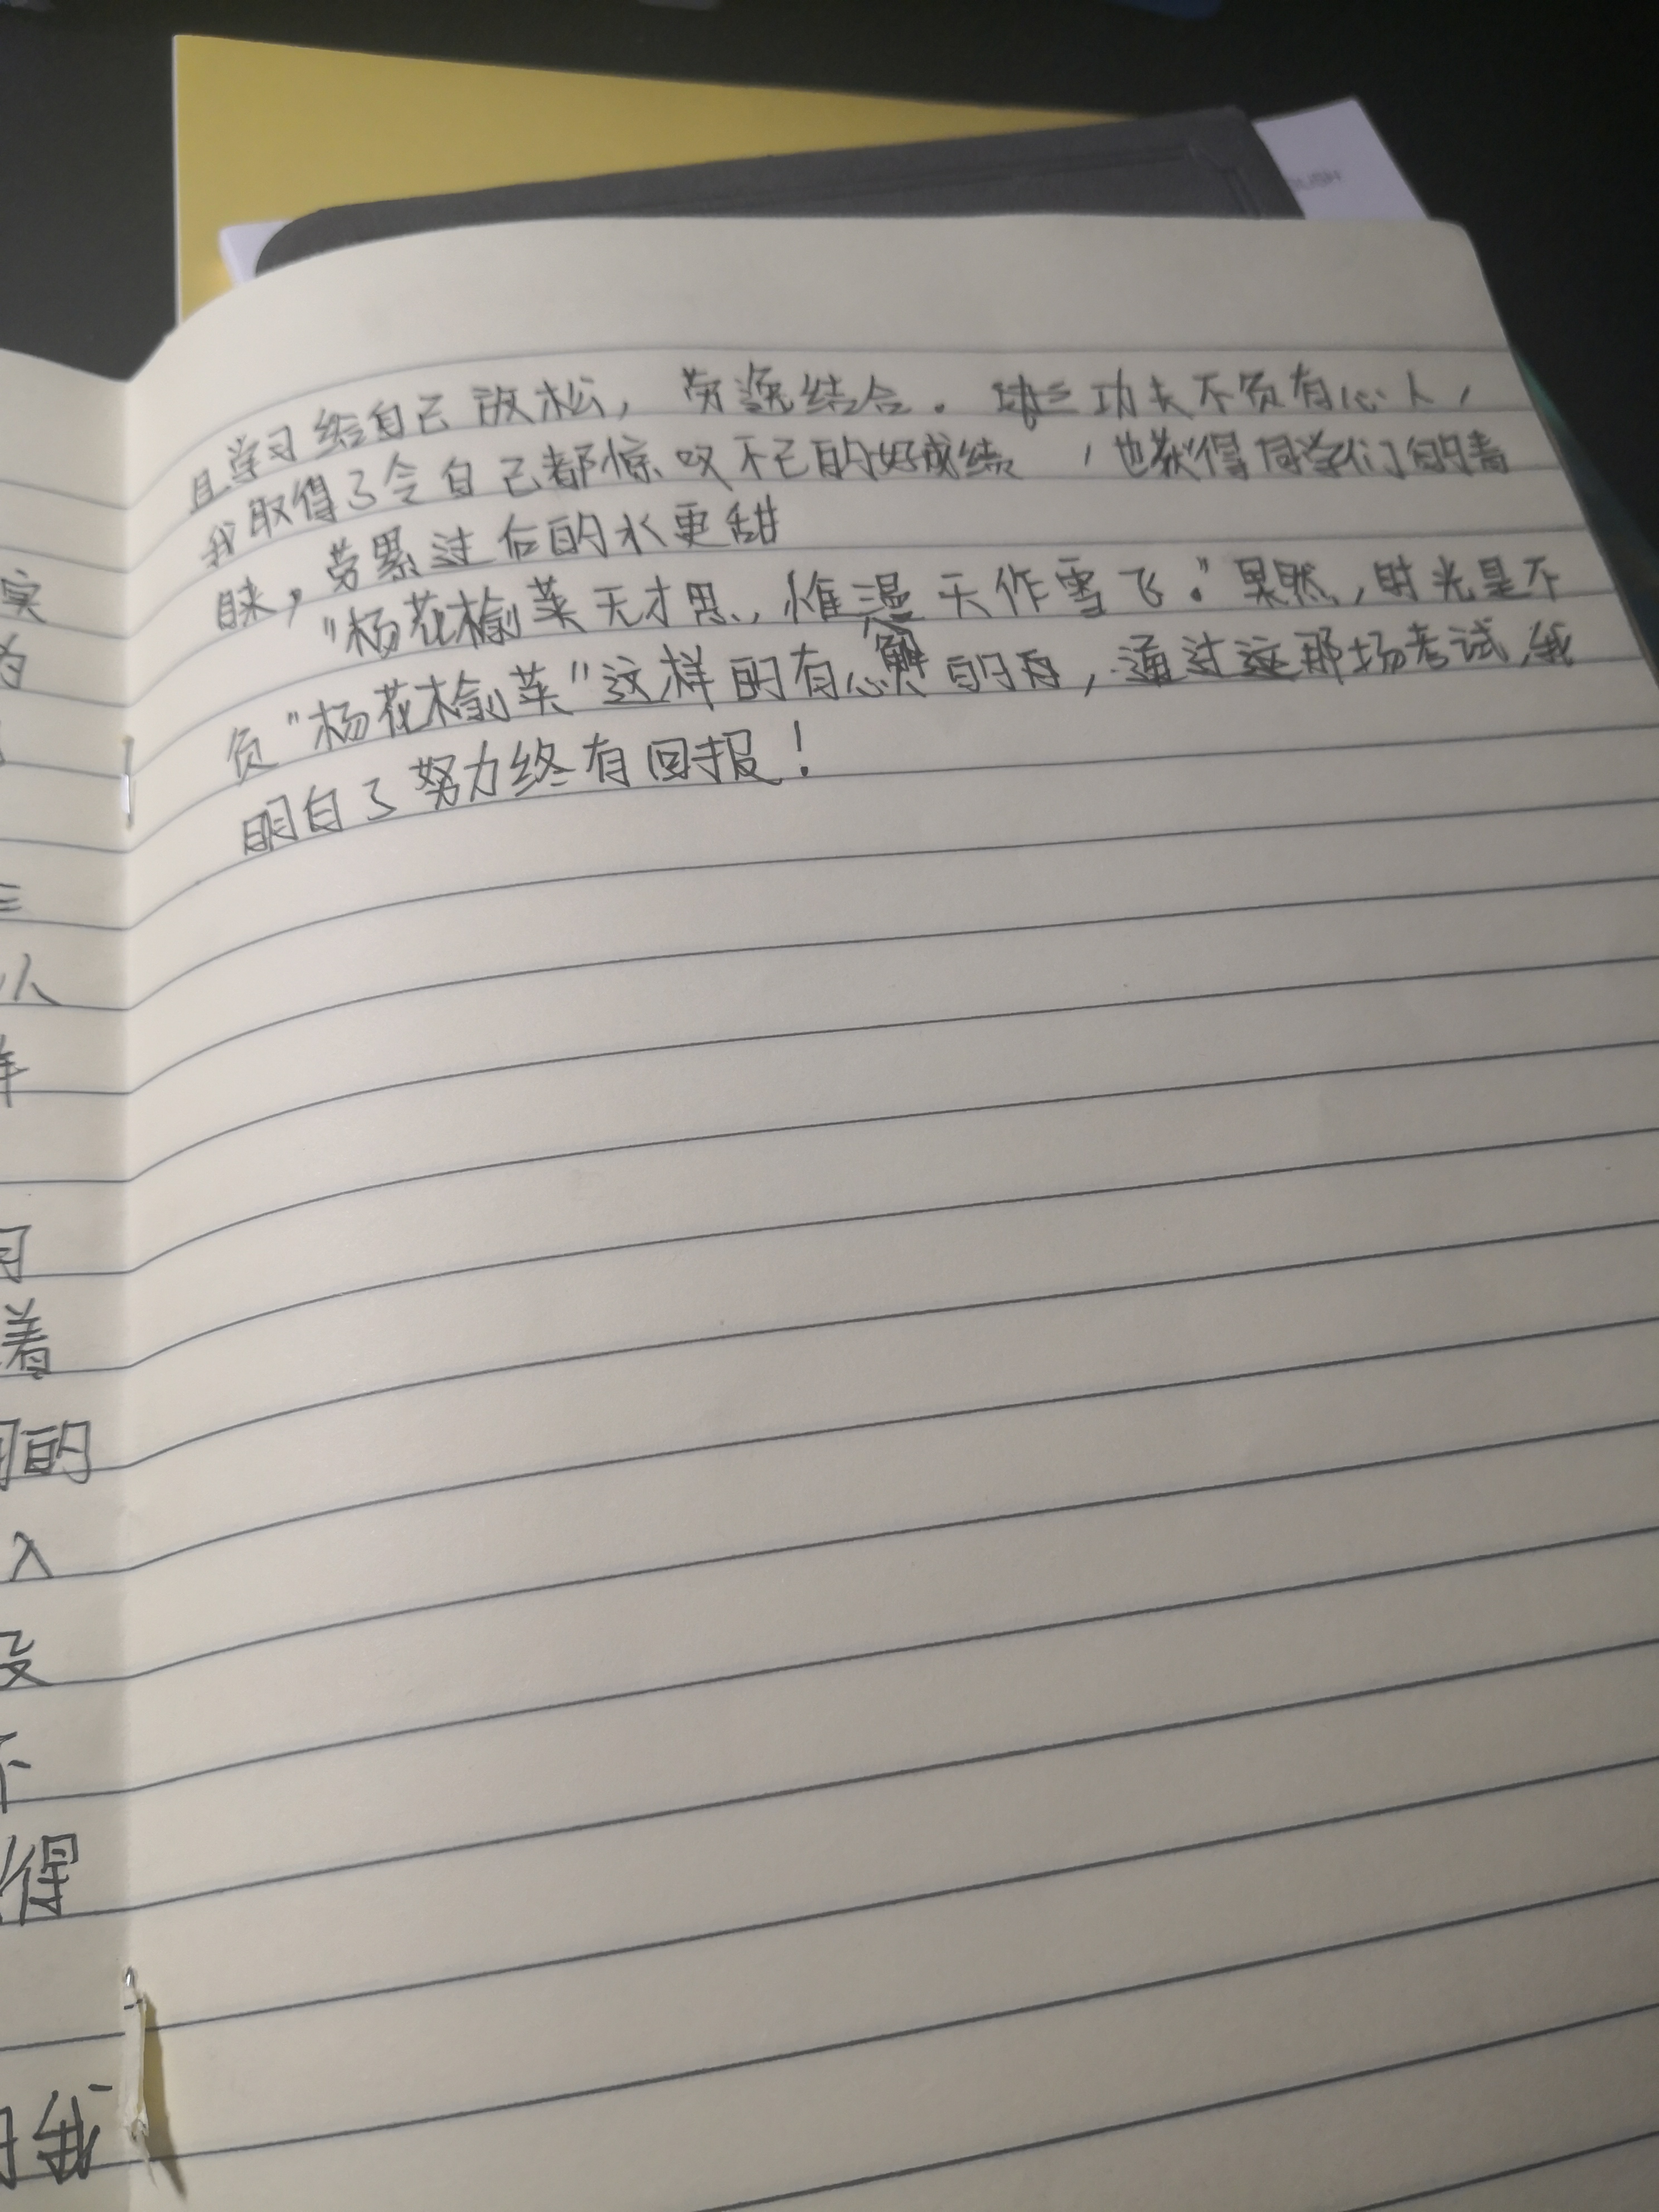 且学习给自己放松，劳逸结合。 功夫不负有心人，
我取得了令自己都惊叹不已的好成绩，也获得同学们的青
睐，劳累过后的水更甜
"杨花榆荚无才思，惟漫天作雪飞。"果然，时光是不
负"杨花榆荚"这样的有心 的，通过 那场考试，我
明白了努力终有回报！
实
为
三
从
样
着
的
入
没
不
得
我